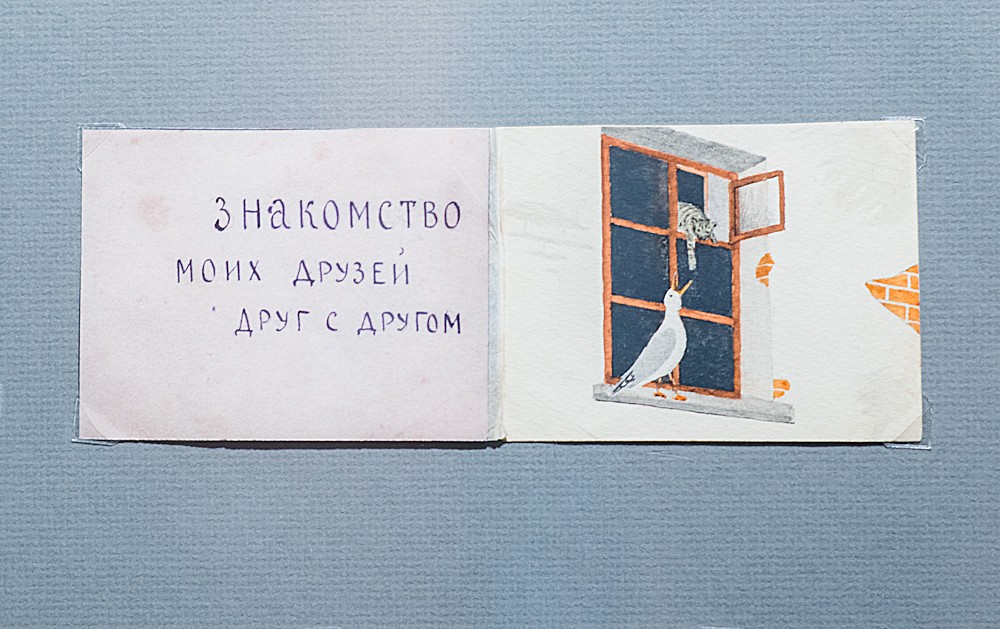 Знакомство
моих друзей
друг с другом